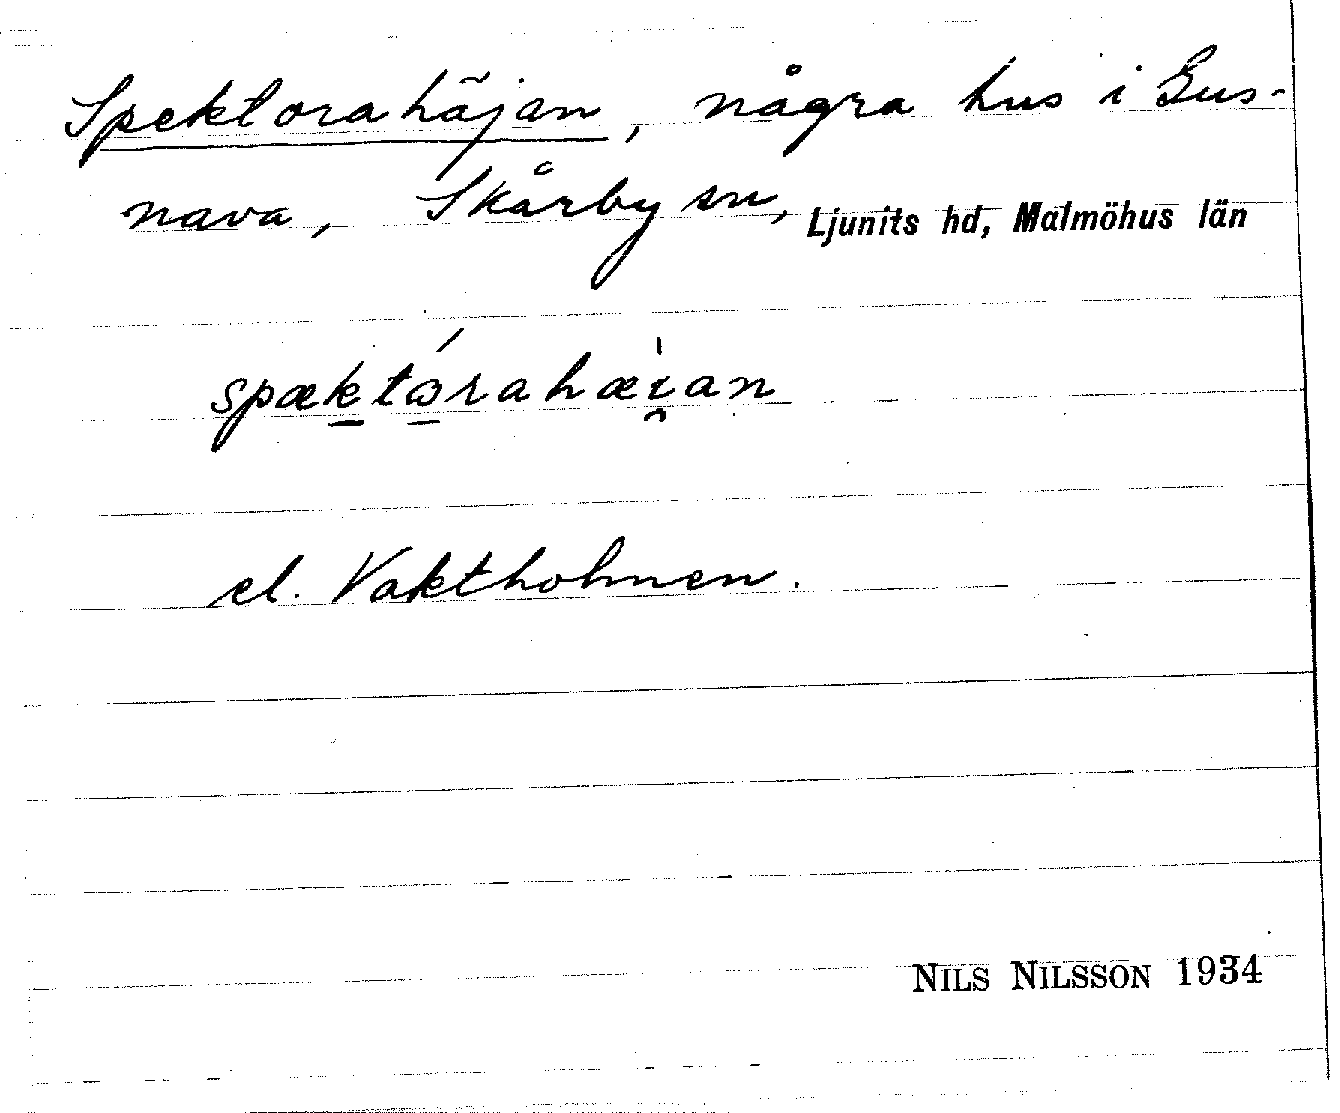 Spektorahäjan, några hus i Gus-
nava, Skårby sn, Ljunits hd, Malmöhus län
spæktɷ́rahæi̯an
el. Vaktholmen.
NILS NILSSON 1934